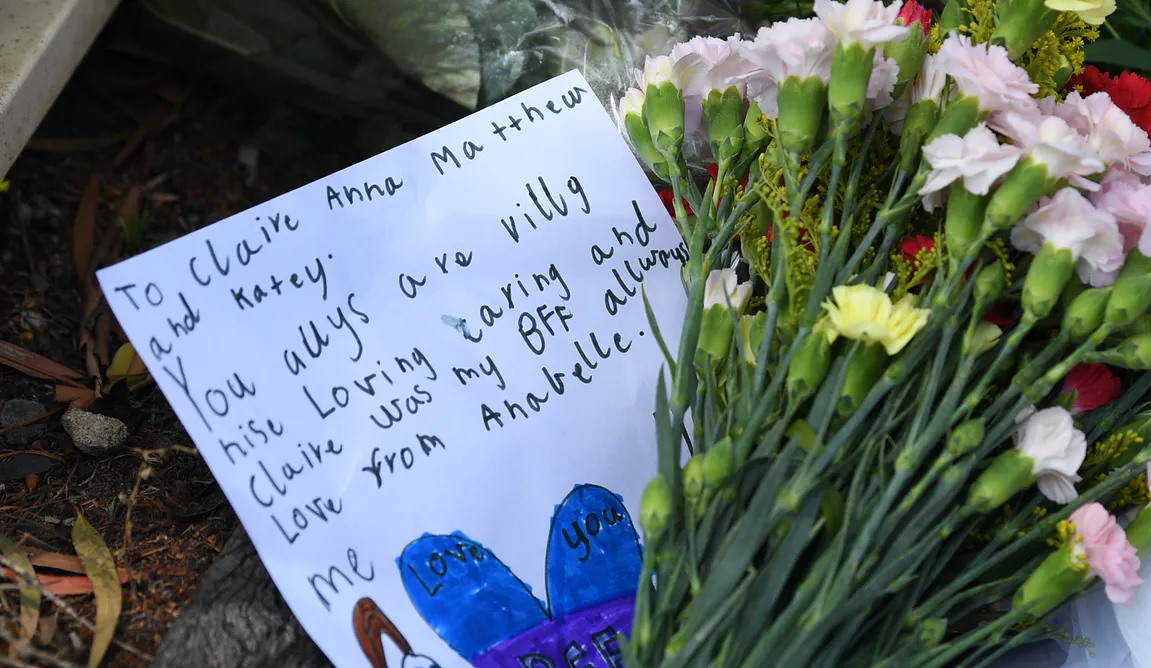 To Claire Anna Matthew
and Katey.
You allys are villy
nise Loving caring and
Claire was my BFF allways
Love from Anabelle.
me
Love you